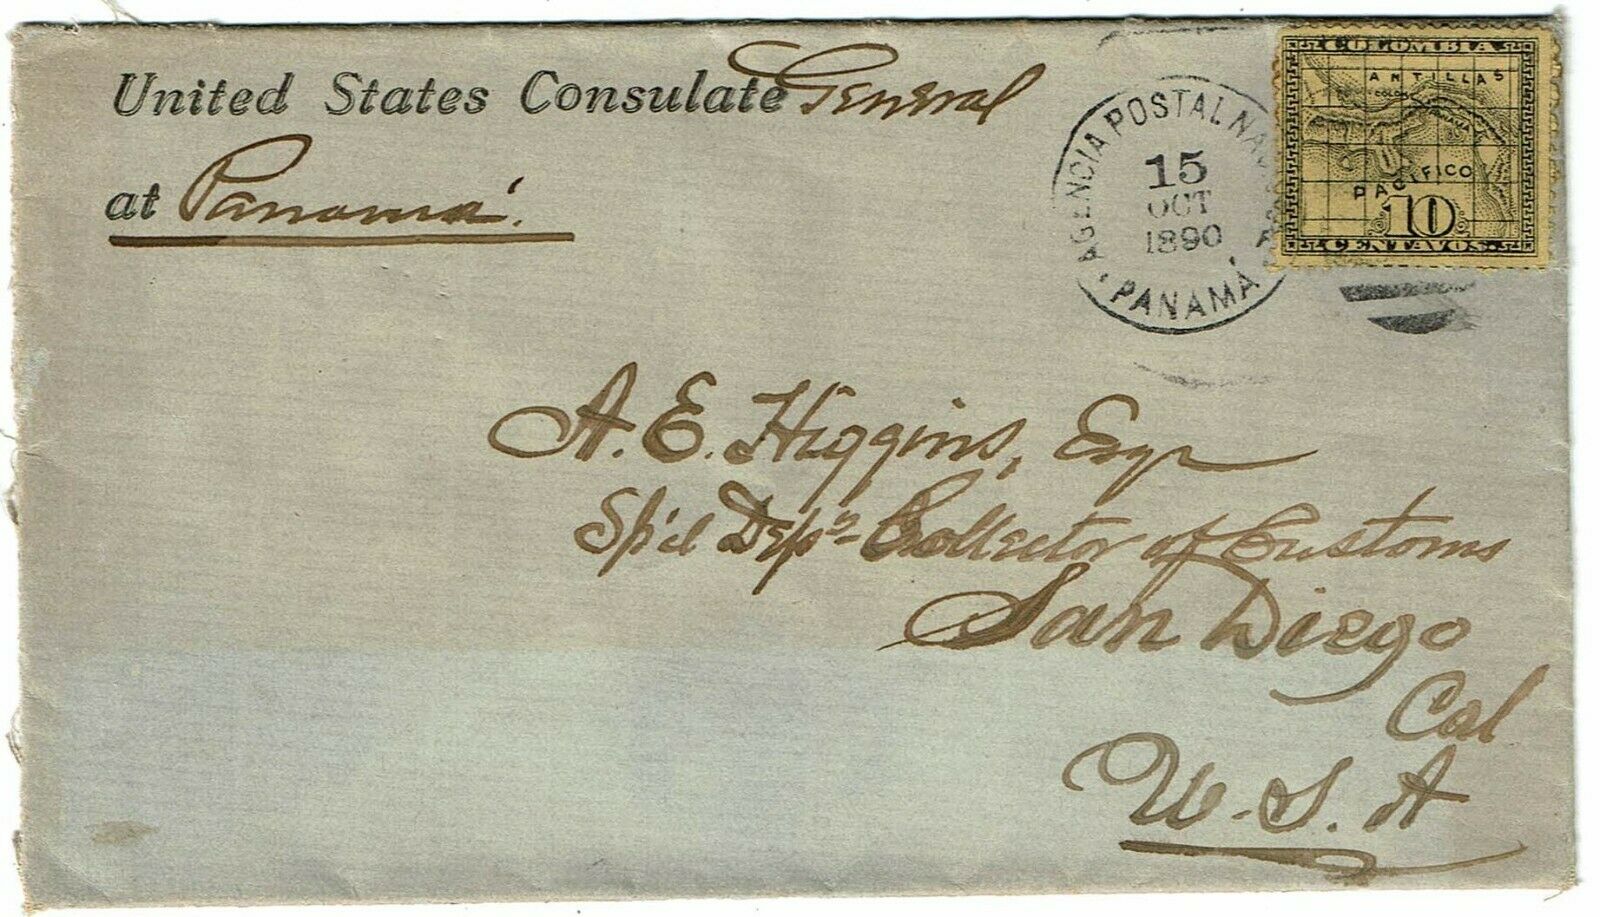 United States Consulate General
at Panamá.
AGENCIA POSTAL NA
15
OCT
1890
PANAMÁ
COLOMBIA
ANTILLAS
COLON
PANAMA
PACIFICO
10
CENTAVOS
A. E. Higgins, Esqr
Sp'cl Dep'y Collector of Customs
San Diego
Cal
U. S. A